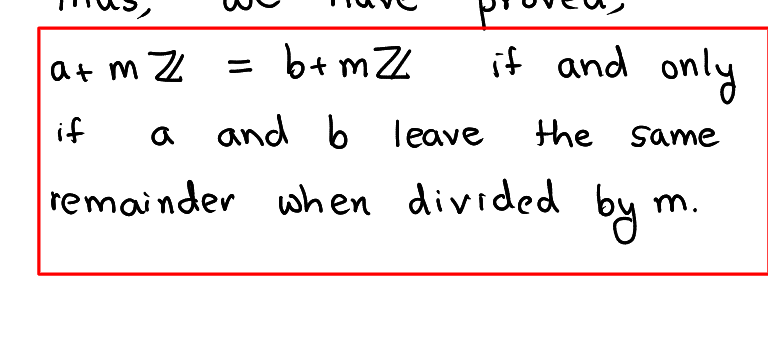 Thus, we have proved,
a + mℤ = b + mℤ if and only
if a and b leave the same
remainder when divided by m.